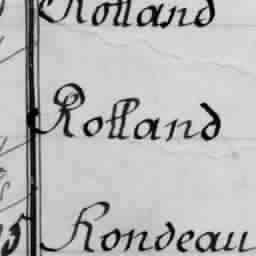 Rolland
Rolland
5 Rondeau